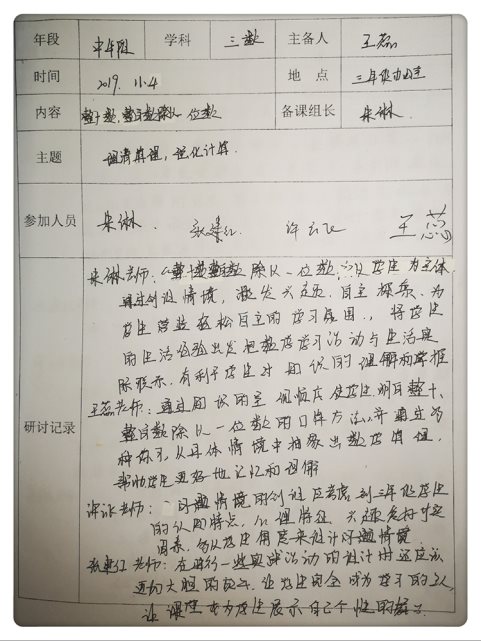 年段 中年段 学科 三数 主备人 王蕊
时间 2019. 11.4 地 点 三年级办公室
内容 整十数,整百数除以一位数 备课组长 朱琳
主题 理清算理,强化计算.
参加人员 朱琳. 许 王蕊
研讨记录
朱琳老师:《整十整百数除以一位数》以学生为主体,
通过创设情境,激发兴趣.自主探索.为
学生营造轻松自主的学习氛围.,将学生
的生活经验出发把数学学习活动与生活实
际联系.有利于学生对知识的理解和掌握
王蕊老师:通过
整百数除以一位数的口算方法,并通过多
种 从具体情境中抽象出数学算理,
帮助学生更好地记忆和理解
许 老师: 问题情境的创设应考虑到三年级学生
的认知特点,心理特征 兴趣爱好等
因素,多从学生角度来设计问题情境
张 红老师:在进行一些实践活动的设计时还应该
更加大胆的 让学生完全成为学习的主人
让课堂成为学生展示自己个性的舞台.